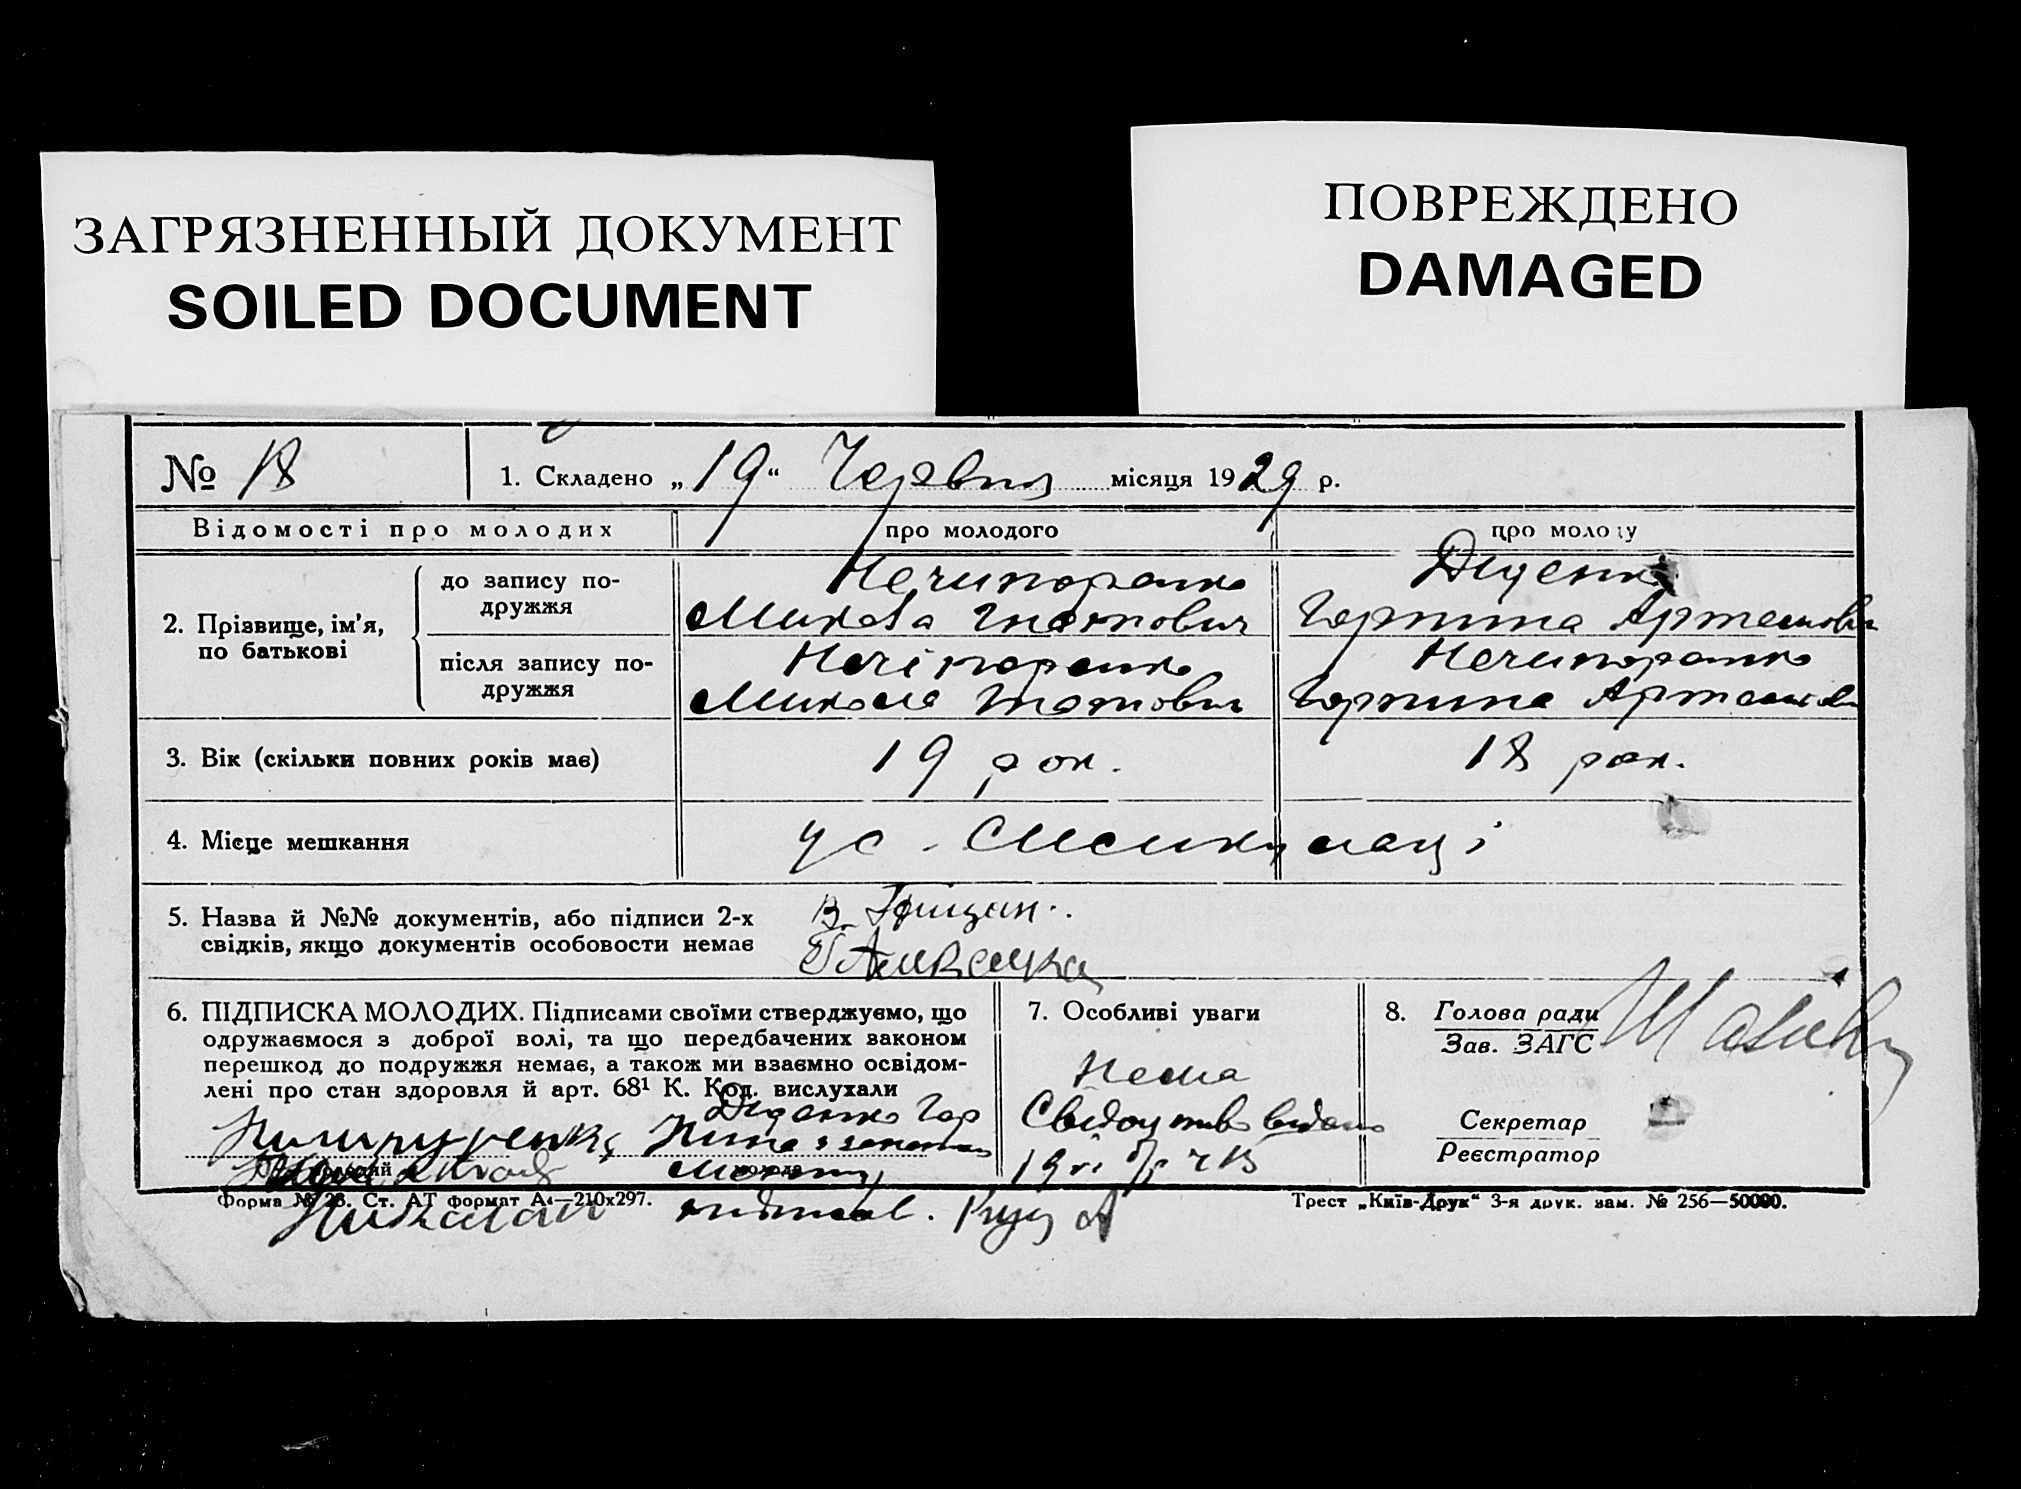 ЗАГРЯЗНЕННЫЙ ДОКУМЕНТ
SOILED DOCUMENT
ПОВРЕЖДЕНО
DAMAGED
№ 18
1. Складено „19“ Червня місяця 1929 р.
Відомості про молодих
про молодого
про молоду
2. Прізвище, ім’я, по батькові
до запису подружжя
Нечипоренко
Микола
Діденко
Горпина Артемовн
після запису подружжя
Нечіпоренко
Микола
Нечипоренко
Горпина
3. Вік (скільки повних років має)
19 рок.
18 рок.
4. Місце мешкання
у с.
5. Назва й №№ документів, або підписи 2-х
свідків, якщо документів особовости немає
В. Грищан.
6. ПІДПИСКА МОЛОДИХ. Підписами своїми стверджуємо, що
одружаємося з доброї волі, та що передбачених законом
перешкод до подружжя немає, а також ми взаємно освідом-
лені про стан здоровля й арт. 68¹ К. Код. вислухали
Діденко Гор
пина
молодий
молода
7. Особливі уваги
Нема
Свідоцтво видано
8. Голова ради
Зав. ЗАГС
Секретар
Реєстратор
Форма № 28. Ст. АТ формат А4—210х297.
Трест „Київ-Друк“ 3-я друк. зам. № 256—50000.